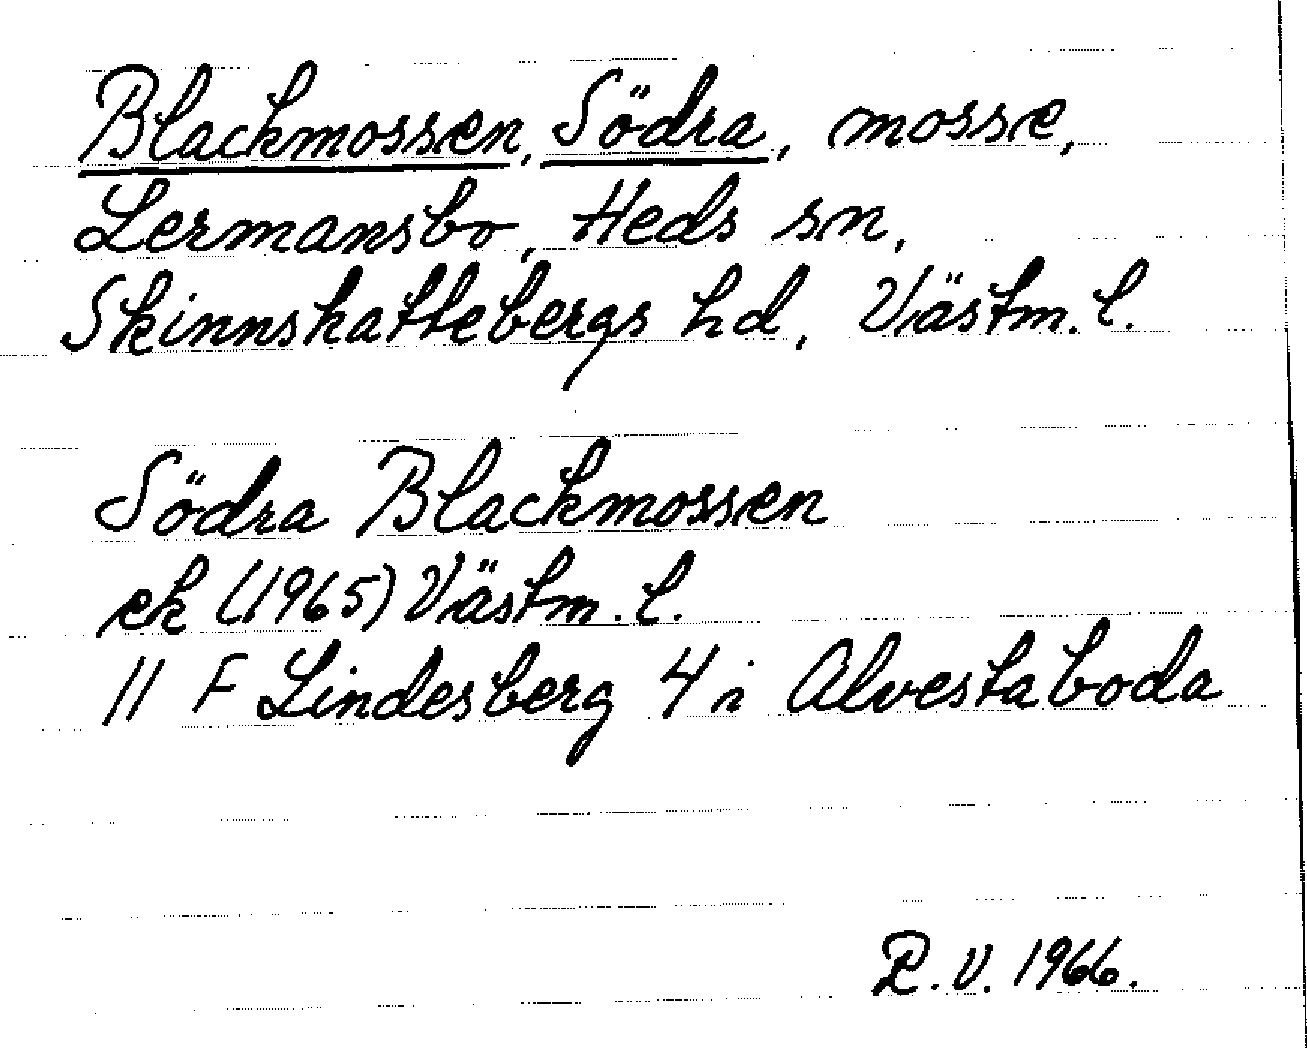 Blackmossen, Södra, mosse,
Lermansbo, Heds sn,
Skinnskattebergs hd, Västm. l.
Södra Blackmossen
ek (1965) Västm. l.
11 F Lindesberg 4 i Alvestaboda
R. V. 1966.